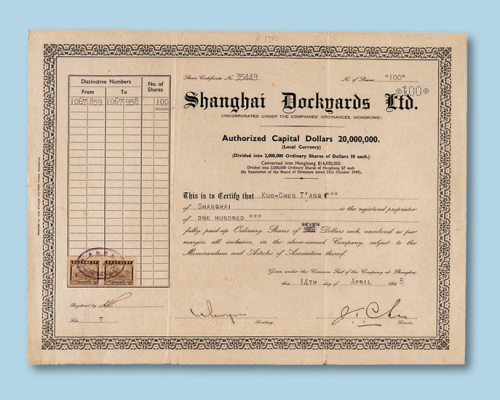 Share Certificate No. 35449
No. of Shares *100*
Distinctive Numbers
No. of Shares
From To
1067859 1067958 100
*100*
Shanghai Dockyards Ltd.
(INCORPORATED UNDER THE COMPANIES' ORDINANCES, HONGKONG)
Authorized Capital Dollars 20,000,000.
(Local Currency)
(Divided into 2,000,000 Ordinary Shares of Dollars 10 each.)
Converted into Hongkong $14,000,000
Divided into 2,000,000 Ordinary Shares of Hongkong $7 each
This is to Certify that KUO-CHEN T'ANG ***
of SHANGHAI is the registered proprietor
of ONE HUNDRED ***
fully paid-up Ordinary Shares of SEVEN Dollars each, numbered as per
margin all inclusive, in the above-named Company, subject to the
Memorandum and Articles of Association thereof.
Given under the Common Seal of the Company at Shanghai,
this 14TH day of APRIL 1948
Registered by
Folio T
Secretary
Director